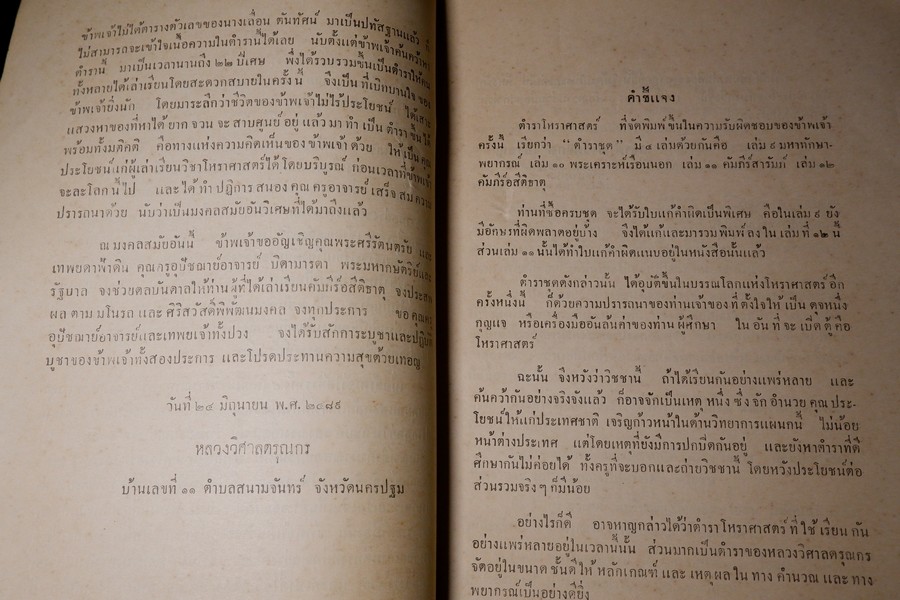 ข้าพเจ้าไม่ได้ตำรางตัวเลขของนางเลื่อน ตันทัศน์ มาเป็นปทัสฐานแล้ว
ไม่สามารถจะเข้าใจเนื้อความในตำรานี้ได้เลย นับตั้งแต่ข้าพเจ้าค้นคว้าหา
ตำรานี้ มาเป็นเวลานานถึง ๒๒ ปีเศษ พึ่งได้รวบรวมขึ้นเป็นตำราให้คน
ทั้งหลายได้เล่าเรียนโดยสะดวกสบายในครั้งนี้ จึงเป็นที่เบิกบานใจ ของ
ข้าพเจ้ายิ่งนัก โดยมาระลึกว่าชีวิตของข้าพเจ้าไม่ไร้ประโยชน์ ได้เสาะ
แสวงหาของที่หาได้ยาก จวน จะ สาบศูนย์ อยู่ แล้ว มา ทำ เป็น ตำรา ขึ้น ไว้
พร้อมทั้งมติคิด คือทางแห่งความคิดเห็นของข้าพเจ้าด้วย ให้เป็นคุณ
ประโยชน์แก่ผู้เล่าเรียนวิชาโหราศาสตร์ได้โดยบริบูรณ์ ก่อนเวลาที่ข้าพเจ้า
จะละโลกนี้ไป และได้ทำปฏิการสนองคุณครูอาจารย์เสร็จสมความ
ปรารถนาด้วย นับว่าเป็นมงคลสมัยอันวิเศษที่ได้มาถึงแล้ว
ณ มงคลสมัยอันนี้ ข้าพเจ้าขออัญเชิญคุณพระศรีรัตนตรัย และ
เทพยดาฟ้าดิน คุณครูอุปัชฌาย์อาจารย์ บิดามารดา พระมหากษัตริย์และ
รัฐบาล จงช่วยดลบันดาลให้ท่านผู้ที่ได้เล่าเรียนคัมภีร์อสีติธาตุ จงประสบ
ผล ตาม มโนรถ และ ศิริสวัสดิ์พิพัฒนมงคล จงทุกประการ ขอ คุณครู
อุปัชฌาย์อาจารย์และเทพยเจ้าทั้งปวง จงได้รับสักการะบูชาและปฏิบัติ
บูชาของข้าพเจ้าทั้งสองประการ และโปรดประทานความสุขด้วยเทอญ
วันที่ ๒๔ มิถุนายน พ.ศ. ๒๔๘๙
หลวงวิศาลดรุณกร
บ้านเลขที่ ๑๑ ตำบลสนามจันทร์ จังหวัดนครปฐม
คำชี้แจง
ตำราโหราศาสตร์ ที่จัดพิมพ์ขึ้นในความรับผิดชอบของข้าพเจ้า
ครั้งนี้ เรียกว่า “ ตำราชุด ” มี ๔ เล่มด้วยกันคือ เล่ม ๙ มหาทักษา-
พยากรณ์ เล่ม ๑๐ พระเคราะห์เรือนนอก เล่ม ๑๑ คัมภีร์สารัมภ์ เล่ม ๑๒
คัมภีร์อสีติธาตุ
ท่านที่ซื้อครบชุด จะได้รับใบแก้คำผิดเป็นพิเศษ คือในเล่ม ๙ ยัง
มีอักษรที่ผิดพลาดอยู่บ้าง จึงได้แก้และมารวมพิมพ์ลงในเล่มที่ ๑๒ นี้
ส่วนเล่ม ๑๑ นั้นได้ทำใบแก้คำผิดแนบอยู่ในหนังสือนั้นแล้ว
ตำราชุดดังกล่าวนั้น ได้อุบัติขึ้นในบรรณโลกแห่งโหราศาสตร์อีก
ครั้งหนึ่งนี้ ก็ด้วยความปรารถนาของท่านเจ้าของที่ตั้งใจให้เป็นดุจหนึ่ง
กุญแจ หรือเครื่องมืออันล้นค่าของท่านผู้ศึกษา ใน อัน ที่ จะ เปิด ตู้ คือ
โหราศาสตร์
ฉะนั้น จึงหวังว่าวิชชานี้ ถ้าได้เรียนกันอย่างแพร่หลาย และ
ค้นคว้ากันอย่างจริงจังแล้ว ก็อาจจักเป็นเหตุ หนึ่ง ซึ่ง จัก อำนวย คุณ ประ-
โยชน์ให้แก่ประเทศชาติ เจริญก้าวหน้าในด้านวิทยาการแผนกนี้ ไม่น้อย
หน้าต่างประเทศ แต่โดยเหตุที่ยังมีการปกปิดกันอยู่ และยังหาตำราที่ดี
ศึกษากันไม่ค่อยได้ ทั้งครูที่จะบอกและถ่ายวิชชานี้ โดยหวังประโยชน์ต่อ
ส่วนรวมจริง ๆ ก็มีน้อย
อย่างไรก็ดี อาจหาญกล่าวได้ว่าตำราโหราศาสตร์ที่ใช้เรียนกัน
อย่างแพร่หลายอยู่ในเวลานี้นั้น ส่วนมากเป็นตำราของหลวงวิศาลดรุณกร
จัดอยู่ในขนาด ชั้นดีให้ หลักเกณฑ์ และ เหตุ ผล ใน ทาง คำนวณ และ ทาง
พยากรณ์เป็นอย่างดียิ่ง